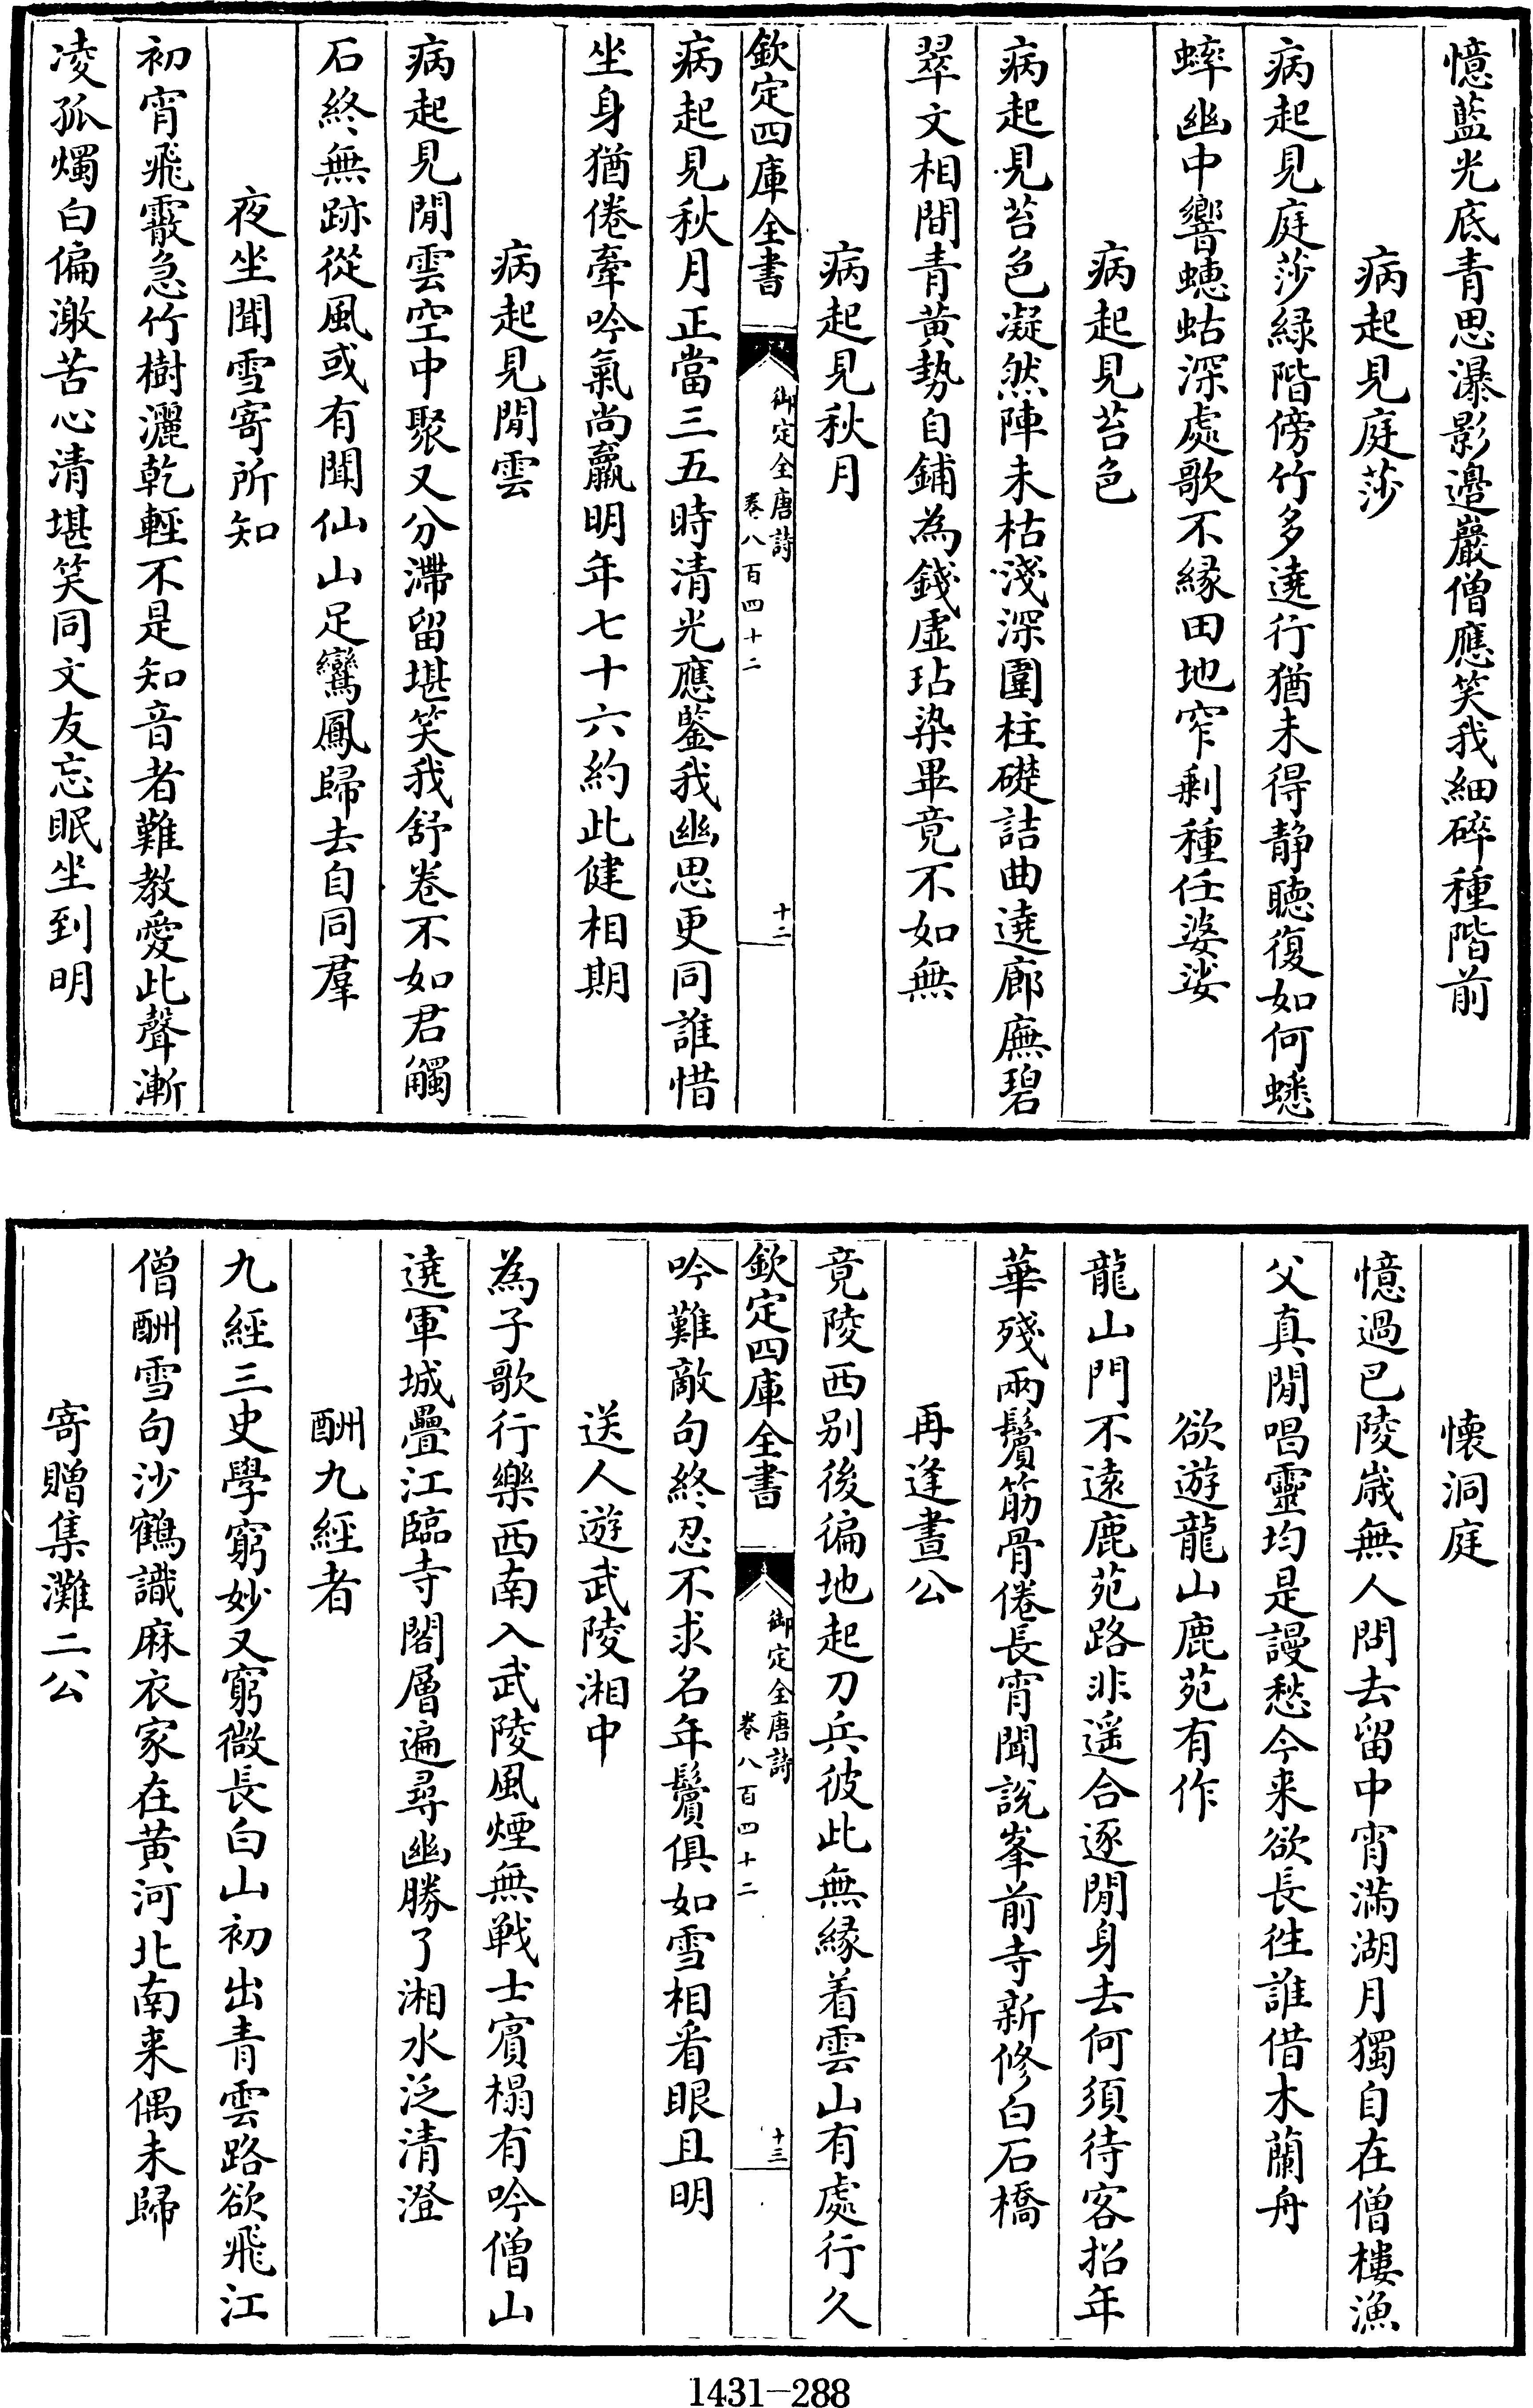 憶藍光底青思瀑影邊巖僧應笑我細碎種階前
病起見庭莎
病起見庭莎緑階傍竹多遶行猶未得静聽復如何蟋
蟀幽中響蟪蛄深處歌不縁田地窄剩種任婆娑
病起見苔色
病起見苔色凝然陣未枯淺深圍柱礎詰曲遶廊廡碧
翠文相間青黄勢自鋪為錢虚玷染畢竟不如無
病起見秋月
欽定四庫全書
御定全唐詩
卷八百四十二
十二
病起見秋月正當三五時清光應鑒我幽思更同誰惜
坐身猶倦牽吟氣尚羸明年七十六約此健相期
病起見閒雲
病起見閒雲空中聚又分滯留堪笑我舒卷不如君觸
石終無跡從風或有聞仙山足鸞鳳歸去自同羣
夜坐聞雪寄所知
初宵飛霰急竹樹灑乾輕不是知音者難教愛此聲漸
凌孤燭白偏激苦心清堪笑同文友忘眠坐到明
懷洞庭
憶過巴陵嵗無人問去留中宵滿湖月獨自在僧樓漁
父真閒唱靈均是謾愁今来欲長徃誰借木蘭舟
欲遊龍山鹿苑有作
龍山門不遠鹿苑路非遥合逐閒身去何須待客招年
華殘兩鬢筋骨倦長宵聞說峯前寺新修白石橋
再逢晝公
竟陵西别後徧地起刀兵彼此無緣着雲山有處行久
欽定四庫全書
御定全唐詩
卷八百四十二
十三
吟難敵句終忍不求名年鬢俱如雪相看眼且明
送人遊武陵湘中
為子歌行樂西南入武陵風煙無戰士賓榻有吟僧山
遶軍城疊江臨寺閣層遍尋幽勝了湘水泛清澄
酬九經者
九經三史學窮妙又窮微長白山初出青雲路欲飛江
僧酬雪句沙鶴識麻衣家在黄河北南来偶未歸
寄贈集灘二公
1431-288